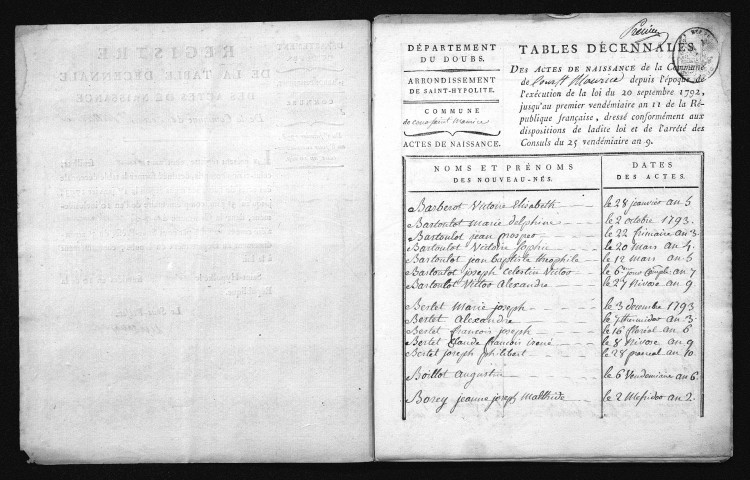 Premier
DÉPARTEMENT
DU DOUBS.
ARRONDISSEMENT
DE SAINT-HYPOLITE.
COMMUNE
de cour saint maurice
ACTES DE NAISSANCE.
TABLES DÉCENNALES
DES ACTES DE NAISSANCE de la Commune
de Cour St Maurice depuis l'époque de
l'exécution de la loi du 20 septembre 1792,
jusqu'au premier vendémiaire an 11 de la Ré-
publique française, dressé conformément aux
dispositions de ladite loi et de l'arrêté des
Consuls du 25 vendémiaire an 9.
NOMS ET PRÉNOMS
DES NOUVEAU-NÉS.
DATES
DES ACTES.
Barberot Victoire Elisabeth le 28 janvier an 5
Bartoulot Marie delphine le 2 octobre 1793.
Bartoulot jean prosper le 22 frimaire an 3.
Bartoulot Victoire Sophie le 20 mars an 4.
Bartoulot jean baptiste theophile le 12 mars an 5
Bartoulot joseph Celestin Victor le 6e jour Compl. an 7
Bartoulot Victor Alexandre le 27 Nivose an 9
Bertet Marie joseph le 3 decembre 1793
Bertet Alexandre le 7 thermidor an 3.
Bertet francois joseph le 16 floreal an 6
Bertet Claude francois irené le 8 Nivose an 9
Bertet joseph philibert le 28 prairial an 10
Boillot augustin le 6 Vendemiaire an 6
Borey jeanne joseph Malthide le 2 Messidor an 2